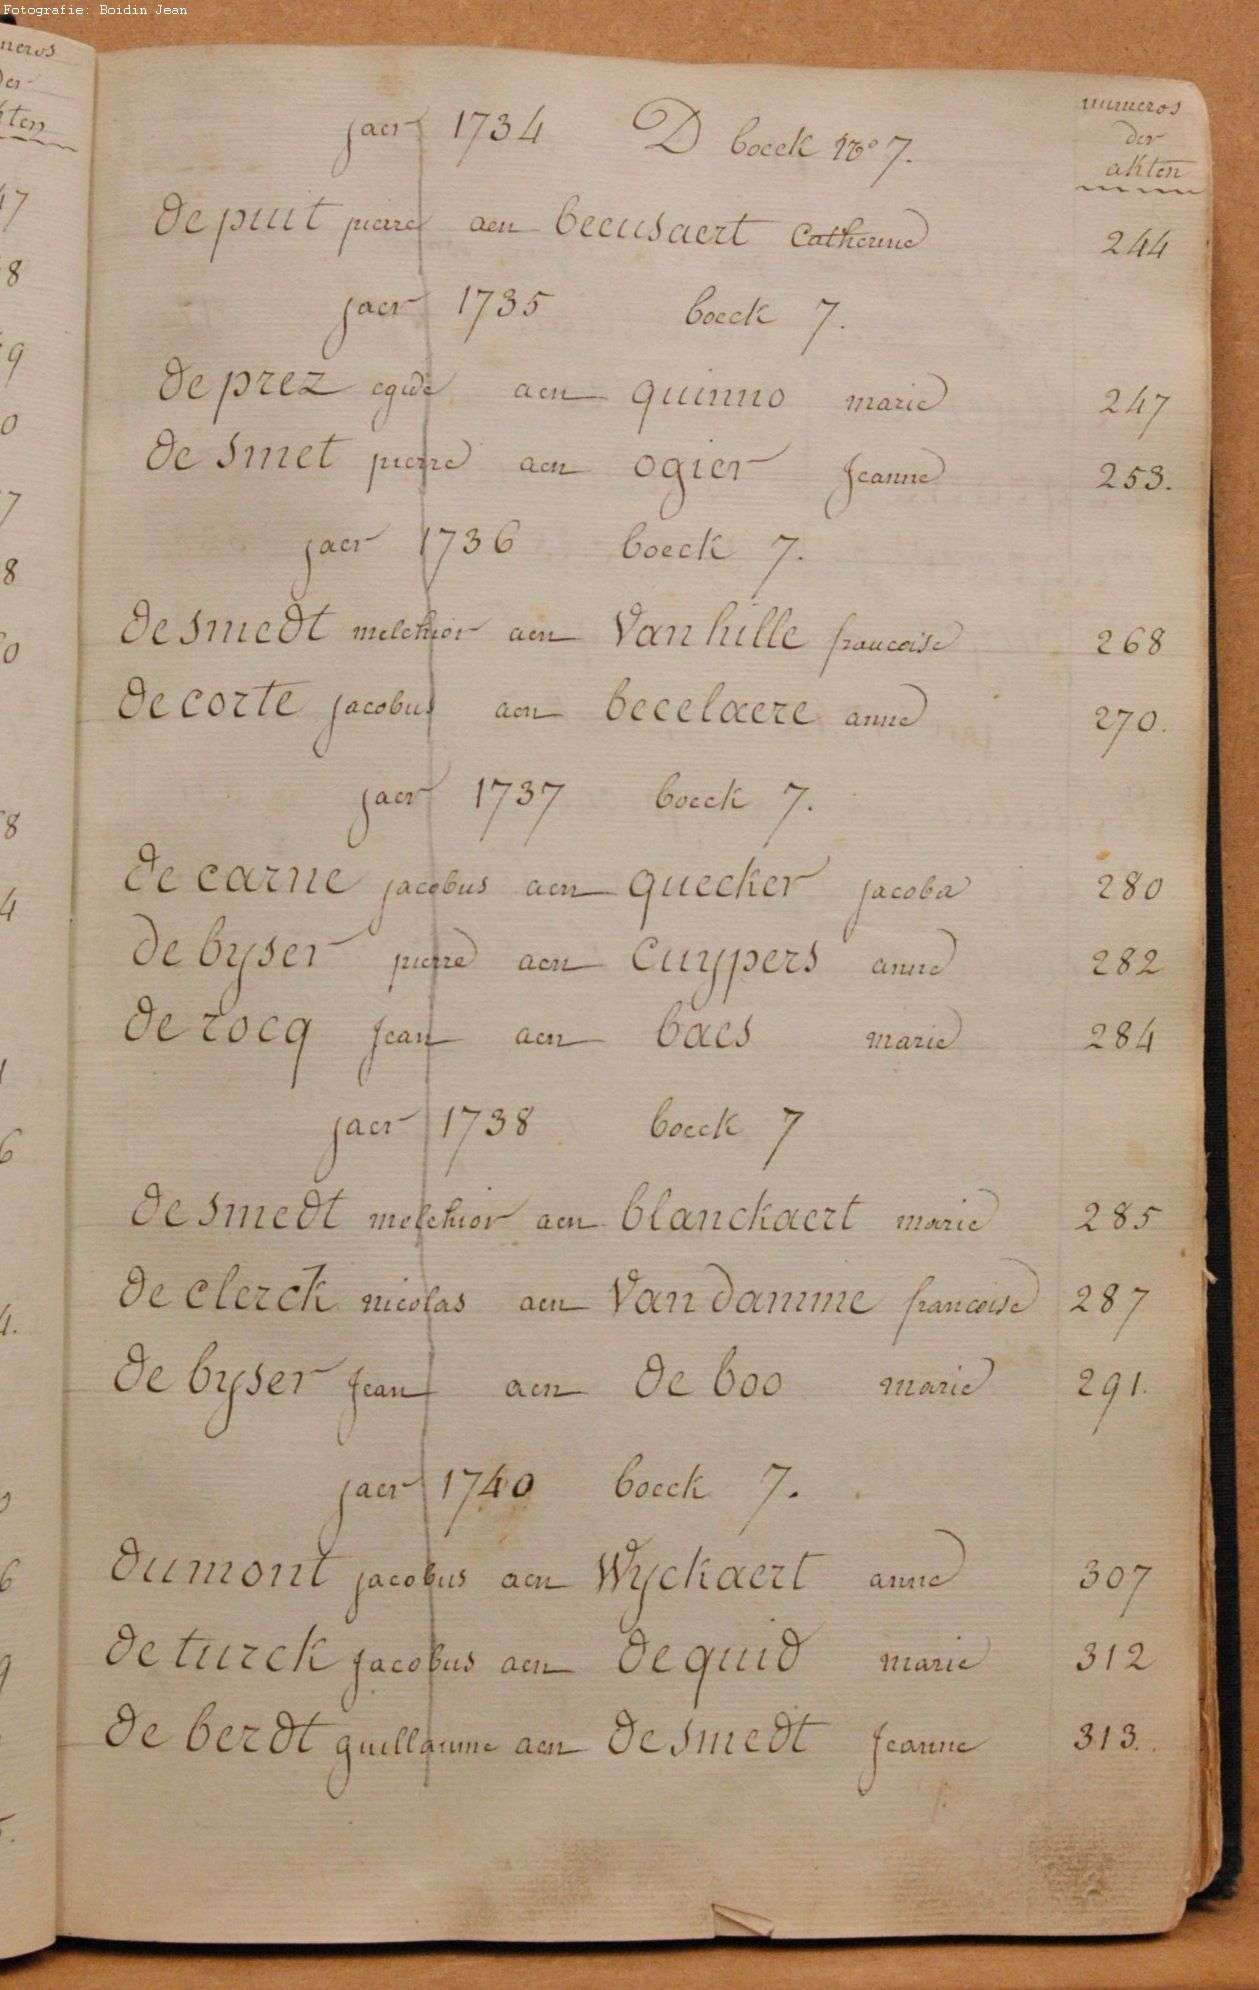 Fotografie: Boidin Jean
jaer 1734 D boeck No 7.
numeros
der
akten
de puit pierre aen beeusaert Catherine 244
jaer 1735 boeck 7.
de prez egide aen quinno marie 247
de smet pierre aen ogier Jeanne 253.
jaer 1736 boeck 7.
de smedt melchior aen Van hille francoise 268
de corte jacobus aen becelaere anne 270.
jaer 1737 boeck 7.
de carne jacobus aen quecker jacoba 280
de byser pierre aen Cuypers anne 282
de rocq Jean aen baes marie 284
jaer 1738 boeck 7
de smedt melchior aen blanckaert marie 285
de clerck nicolas aen Van damme francoise 287
de byser Jean aen de boo marie 291.
jaer 1740 boeck 7.
dumont jacobus aen Wyckaert anne 307
de turck jacobus aen de quid marie 312
de berdt guillaume aen de smedt Jeanne 313.